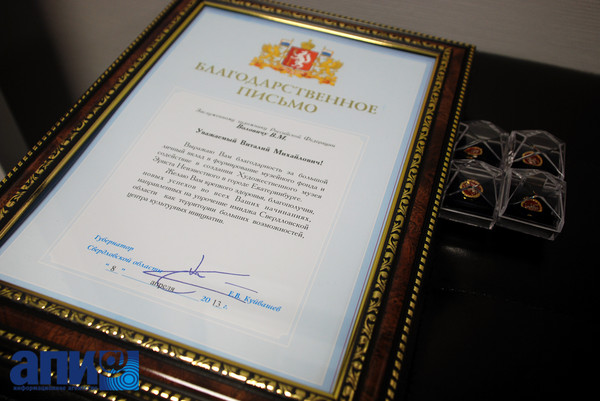 БЛАГОДАРСТВЕННОЕ
ПИСЬМО
Заслуженному художнику Российской Федерации
Воловичу В.М.
Уважаемый Виталий Михайлович!
Выражаю Вам благодарность за большой
личный вклад в формирование музейного фонда и
содействие в создании Художественного музея
Эрнста Неизвестного в городе Екатеринбурге.
Желаю Вам крепкого здоровья, благополучия,
новых успехов во всех Ваших начинаниях,
направленных на упрочение имиджа Свердловской
области как территории больших возможностей,
центра культурных инициатив.
Губернатор
Свердловской области
Е.В. Куйвашев
"8" апреля 2013 г.
апи
информационное